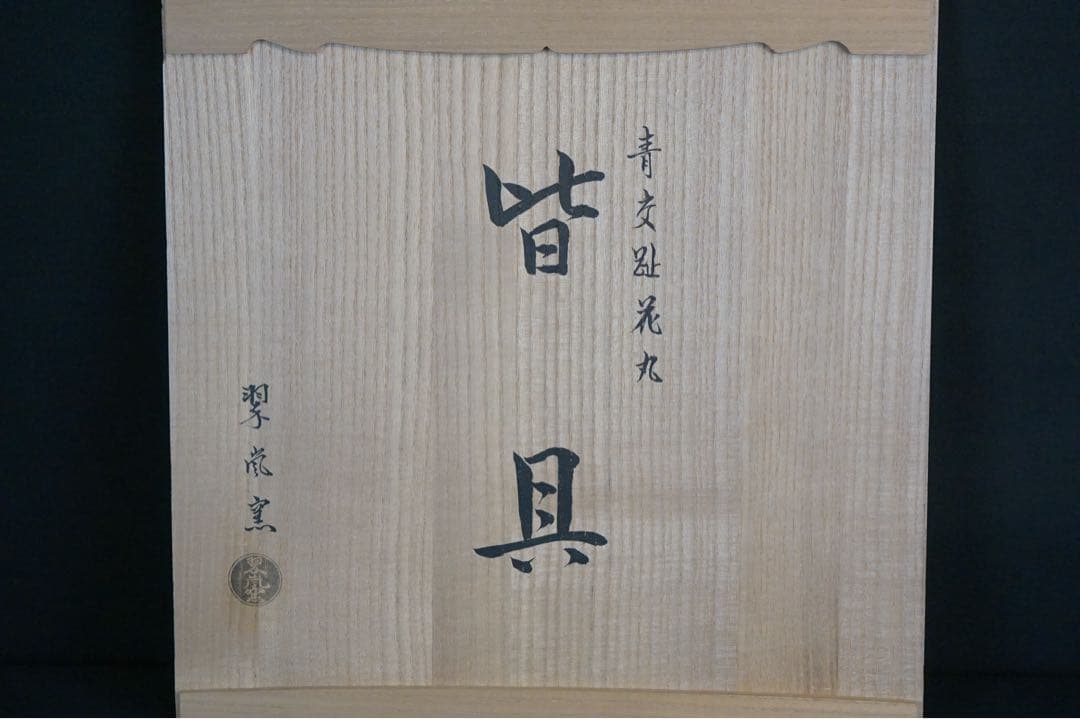 青交趾花丸
皆具
翠嵐窯